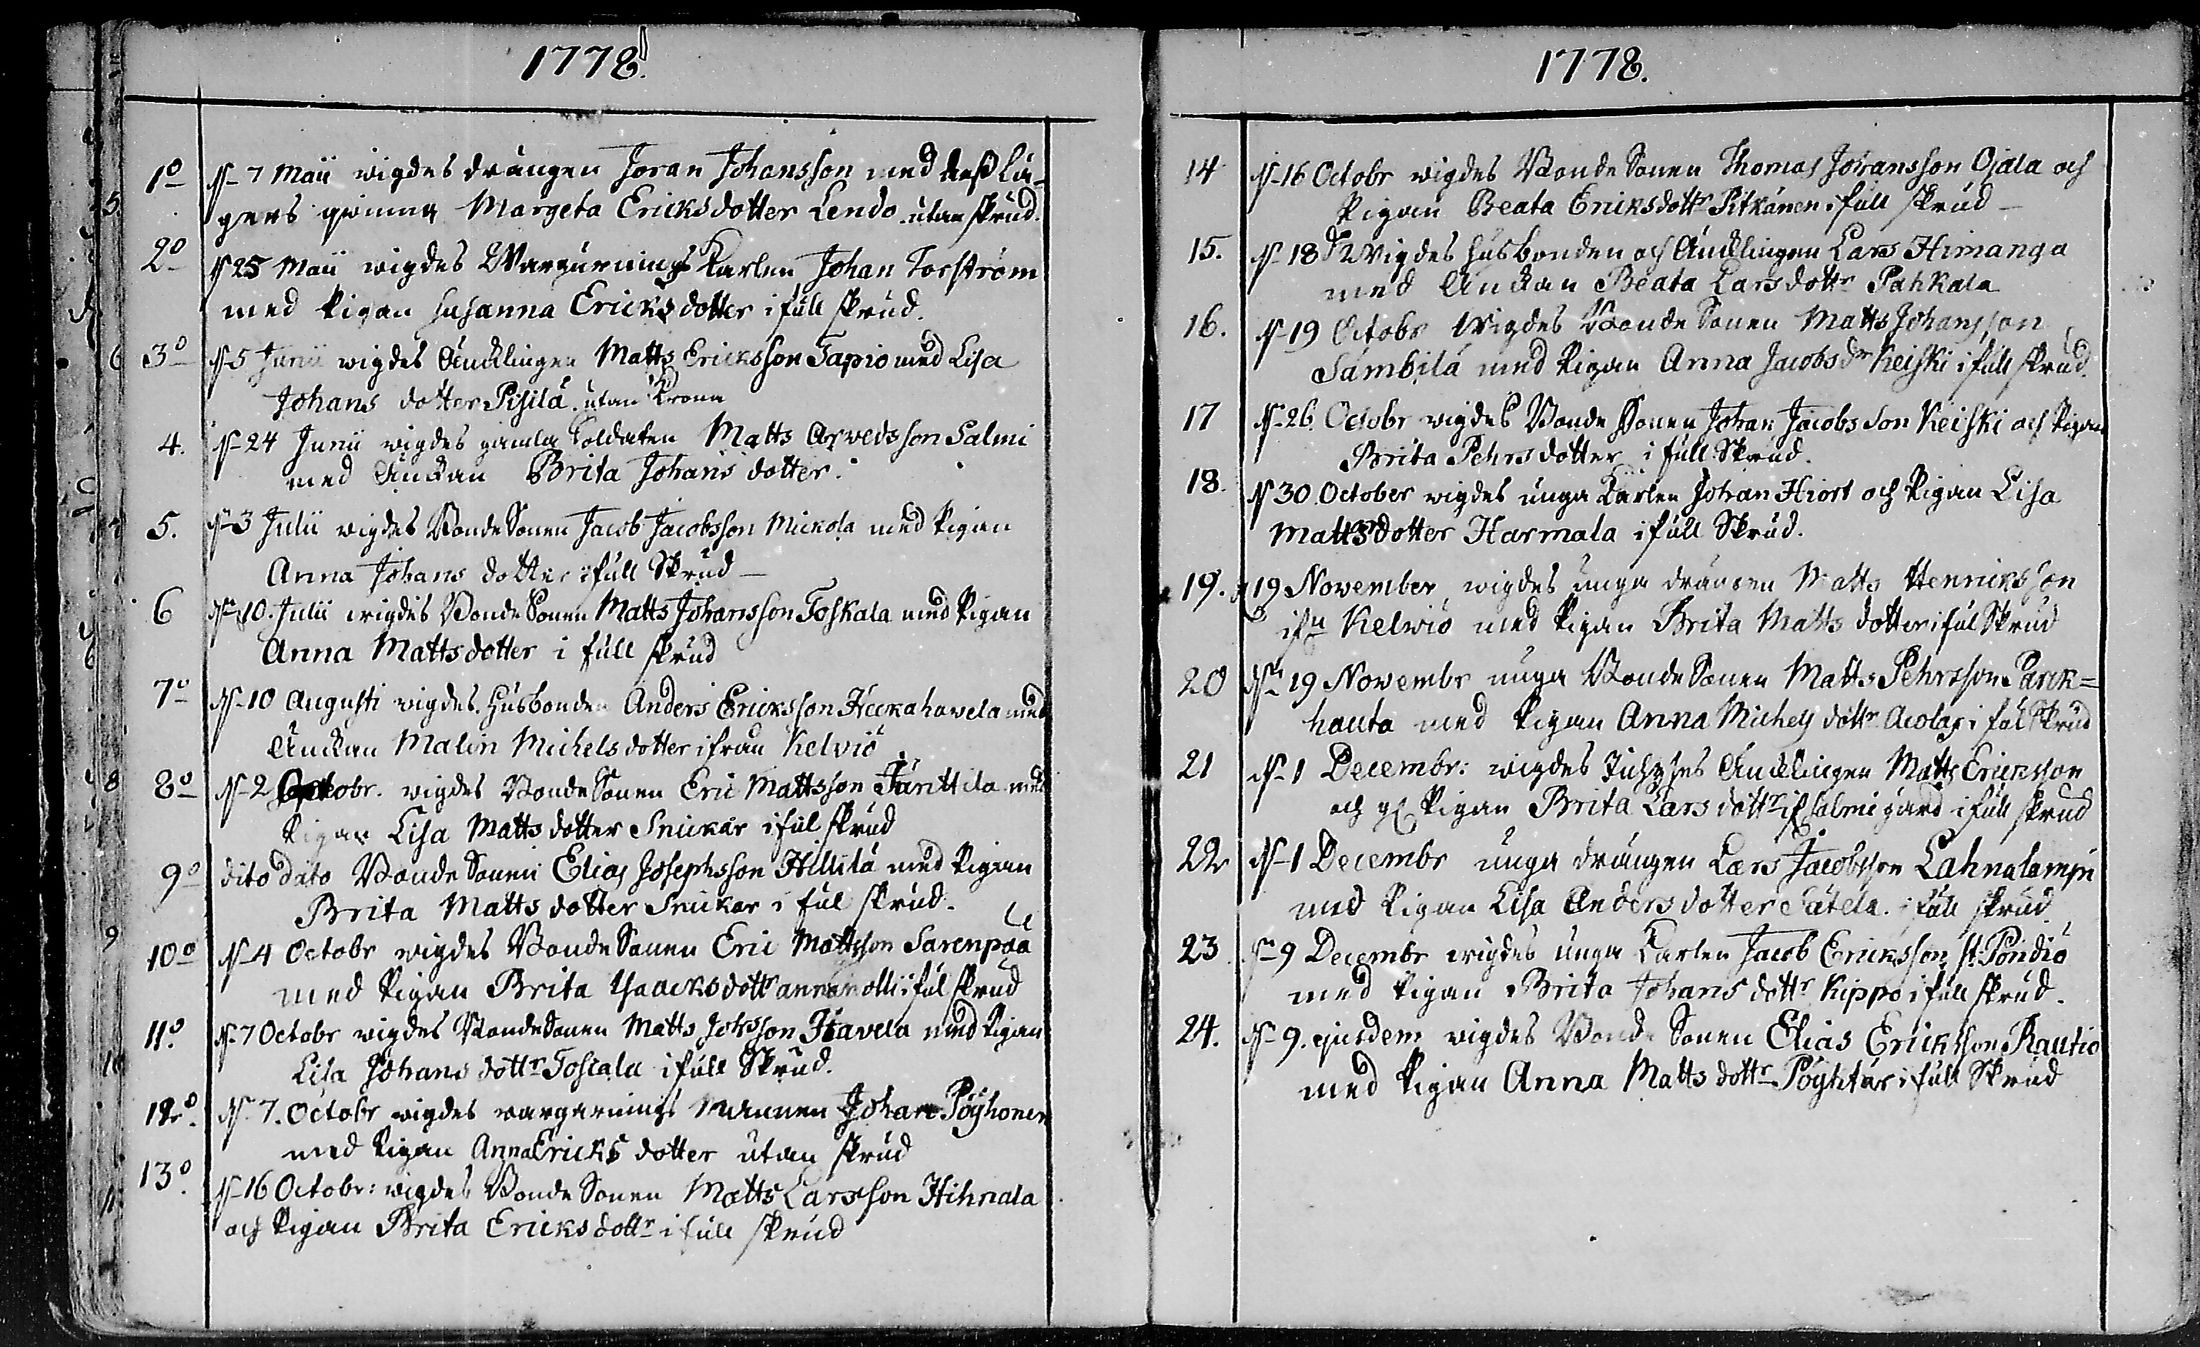 1778.
1o d. 7 Maii wigdes drängen Joran Johansson med dess Lä-
gers qwinna Margeta Ericksdotter Lendo utan skrud.
2o d 25 Maii wigdes Wargärnings Karlen Johan Forström
med Pigan Susanna Ericksdotter i full skrud.
3o d 5 Junii wigdes Äncklingen Matts Ericksson Tapio med Lisa
Johans dotter Pisilä utan Krona
4. d 24 Junii wigdes gamla Soldaten Matts Arvedsson Salmi
med Änckan Brita Johans dotter.
5. d 3 Julii wigdes BondeSonen Jacob Jacobsson Mickola med Pigan
Anna Johans dotter i full Skrud
6 d 10. Julii wigdes BondeSonen Matts Johansson Toskala med Pigan
Anna Mattsdotter i full skrud
7o d 10 Augusti wigdes Husbonden Anders Ericksson Heckahavela med
Änckan Malin Michels dotter ifrån Kelviö
8o d 2 Octobr. wigdes BondeSonen Eric Mattsson Jänttila med
Pigan Lisa Matts dotter Snickar i ful skrud
9o dito dato BondeSonen Elias Josephsson Hillilä med Pigan
Brita Matts dotter Snickar i ful skrud.
10o d 4 Octobr wigdes BondeSonen Eric Mattsson Sarenpää
med Pigan Brita Isaacksdottr annanolli i ful skrud
11o d. 7 Octobr wigdes BondeSonen Matts Johsson Havela med Pigan
Lisa Johans dottr Toscala i full Skrud.
12o. d 7. Octobr wigdes wargärnings Mannen Johan Pöyhönen
med Pigan Anna Ericks dotter utan skrud
13o. d 16 Octobr: wigdes BondeSonen Matts Larsson Hihnala
och Pigan Brita Ericksdottr i full skrud
1778.
14 d 16 Octobr wigdes BondeSonen Thomas Johansson Ojala och
Pigan Beata Eriksdottr Pitkänen i full skrud
15. d 18 Wigdes Husbonden och Äncklingen Lars Himanga
med Änckan Beata Larsdottr Pahkala
16. d 19 Octobr Wigdes BondeSonen Matts Johansson
Sämbilä med Pigan Anna Jacobsdr Keiski i full skrud.
17 d 26 Octobr wigdes Bonde Sonen Johan Jacobsson Keiski och Pigan
Brita Pehrsdotter i full Skrud.
18. d 30 October wigdes unga Karlen Johan Hiort och Pigan Lisa
Matts dotter Harmala i full Skrud.
19. d 19 November wigdes unga drängen Matts Henricksson
ifrn Kelwiö med Pigan Brita Matts dotter i ful Skrud
20 d 19 Novembr unga BondeSonen Matts Pehrsson Parck=
hauta med Pigan Anna Michels dottr Acolas i ful Skrud
21 d 1 Decembr: wigdes Äncklingen Matts Ericksson
och Pigan Brita Lars dottr if Salmi gård i full skrud
22 d 1 Decembr unga drängen Lars Jacobsson Lahnalampi
med Pigan Lisa Anders dotter Sätela i full skrud
23 d 9 Decembr wigdes unga Karlen Jacob Ericksson st. Pöndiö
med Pigan Brita Johans dottr Kippo i full skrud.
24. d 9. ejusdem wigdes Bonde Sonen Elias Ericksson Rautio
med Pigan Anna Matts dottr Pöyhtär i full Skrud